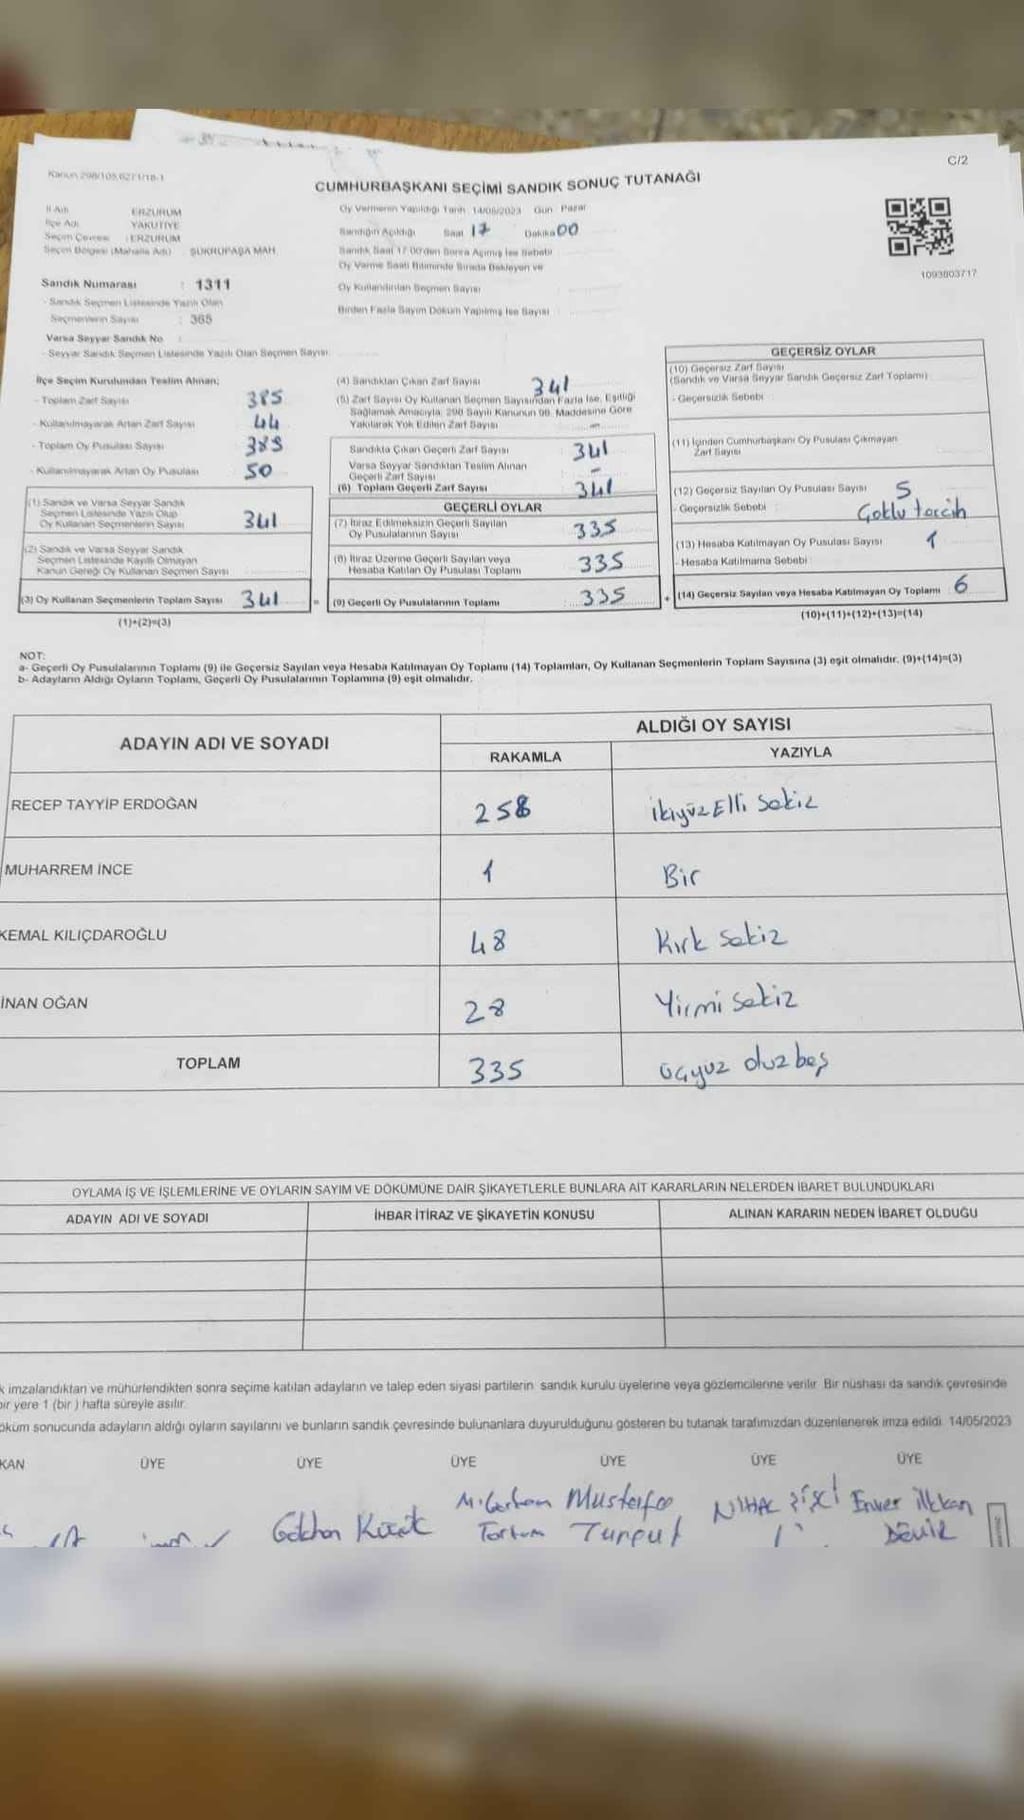 C/2
Kanun 298/105,6271/18-1
CUMHURBAŞKANI SEÇİMİ SANDIK SONUÇ TUTANAĞI
İl Adı ERZURUM
İlçe Adı YAKUTİYE
Seçim Çevresi : ERZURUM
Seçim Bölgesi (Mahalle Adı) ŞÜKRÜPAŞA MAH.
Sandık Numarası : 1311
- Sandık Seçmen Listesinde Yazılı Olan
Seçmenlerin Sayısı : 365
Varsa Seyyar Sandık No
- Seyyar Sandık Seçmen Listesinde Yazılı Olan Seçmen Sayısı
Oy Vermenin Yapıldığı Tarih 14/05/2023 Gün Pazar
Sandığın Açıldığı Saat 17 Dakika 00
Sandık Saat 17.00'den Sonra Açılmış İse Sebebi
Oy Verme Saati Bitiminde Sırada Bekleyen ve
Oy Kullandırılan Seçmen Sayısı
Birden Fazla Sayım Döküm Yapılmış İse Sayısı
1093803717
İlçe Seçim Kurulundan Teslim Alınan;
- Toplam Zarf Sayısı 385
- Kullanılmayarak Artan Zarf Sayısı 44
- Toplam Oy Pusulası Sayısı
- Kullanılmayarak Artan Oy Pusulası 50
(1) Sandık ve Varsa Seyyar Sandık
Seçmen Listesinde Yazılı Olup
Oy Kullanan Seçmenlerin Sayısı 341
(2) Sandık ve Varsa Seyyar Sandık
Seçmen Listesinde Kayıtlı Olmayan
Kanun Gereği Oy Kullanan Seçmen Sayısı
(3) Oy Kullanan Seçmenlerin Toplam Sayısı 341 =
(1)+(2)=(3)
(4) Sandıktan Çıkan Zarf Sayısı 341
(5) Zarf Sayısı Oy Kullanan Seçmen Sayısından Fazla İse, Eşitliği
Sağlamak Amacıyla, 298 Sayılı Kanunun 98. Maddesine Göre
Yakılarak Yok Edilen Zarf Sayısı -
Sandıkta Çıkan Geçerli Zarf Sayısı 341
Varsa Seyyar Sandıktan Teslim Alınan
Geçerli Zarf Sayısı -
(6) Toplam Geçerli Zarf Sayısı 341
GEÇERLİ OYLAR
(7) İtiraz Edilmeksizin Geçerli Sayılan
Oy Pusulalarının Sayısı 335
(8) İtiraz Üzerine Geçerli Sayılan veya
Hesaba Katılan Oy Pusulası Toplamı 335
(9) Geçerli Oy Pusulalarının Toplamı 335 +
GEÇERSİZ OYLAR
(10) Geçersiz Zarf Sayısı
(Sandık ve Varsa Seyyar Sandık Geçersiz Zarf Toplamı)
- Geçersizlik Sebebi
(11) İçinden Cumhurbaşkanı Oy Pusulası Çıkmayan
Zarf Sayısı
(12) Geçersiz Sayılan Oy Pusulası Sayısı 5
- Geçersizlik Sebebi Çoklu tercih
(13) Hesaba Katılmayan Oy Pusulası Sayısı 1
- Hesaba Katılmama Sebebi
(14) Geçersiz Sayılan veya Hesaba Katılmayan Oy Toplamı 6
(10)+(11)+(12)+(13)=(14)
NOT:
a- Geçerli Oy Pusulalarının Toplamı (9) ile Geçersiz Sayılan veya Hesaba Katılmayan Oy Toplamı (14) Toplamları, Oy Kullanan Seçmenlerin Toplam Sayısına (3) eşit olmalıdır. (9)+(14)=(3)
b- Adayların Aldığı Oyların Toplamı, Geçerli Oy Pusulalarının Toplamına (9) eşit olmalıdır.
ADAYIN ADI VE SOYADI
ALDIĞI OY SAYISI
RAKAMLA YAZIYLA
RECEP TAYYİP ERDOĞAN 258 ikiyüzElli Sekiz
MUHARREM İNCE 1 Bir
KEMAL KILIÇDAROĞLU 48 Kırk sekiz
İNAN OĞAN 28 Yirmi sekiz
TOPLAM 335 üçyüz otuz beş
OYLAMA İŞ VE İŞLEMLERİNE VE OYLARIN SAYIM VE DÖKÜMÜNE DAİR ŞİKAYETLERLE BUNLARA AİT KARARLARIN NELERDEN İBARET BULUNDUKLARI
ADAYIN ADI VE SOYADI İHBAR İTİRAZ VE ŞİKAYETİN KONUSU ALINAN KARARIN NEDEN İBARET OLDUĞU
k imzalandıktan ve mühürlendikten sonra seçime katılan adayların ve talep eden siyasi partilerin sandık kurulu üyelerine veya gözlemcilerine verilir. Bir nüshası da sandık çevresinde
bir yere 1 (bir ) hafta süreyle asılır.
öküm sonucunda adayların aldığı oyların sayılarını ve bunların sandık çevresinde bulunanlara duyurulduğunu gösteren bu tutanak tarafımızdan düzenlenerek imza edildi. 14/05/2023
KAN ÜYE ÜYE ÜYE ÜYE ÜYE ÜYE
Gökhan Küçük Mustafa Turgut NİHAL Enver İlkkan